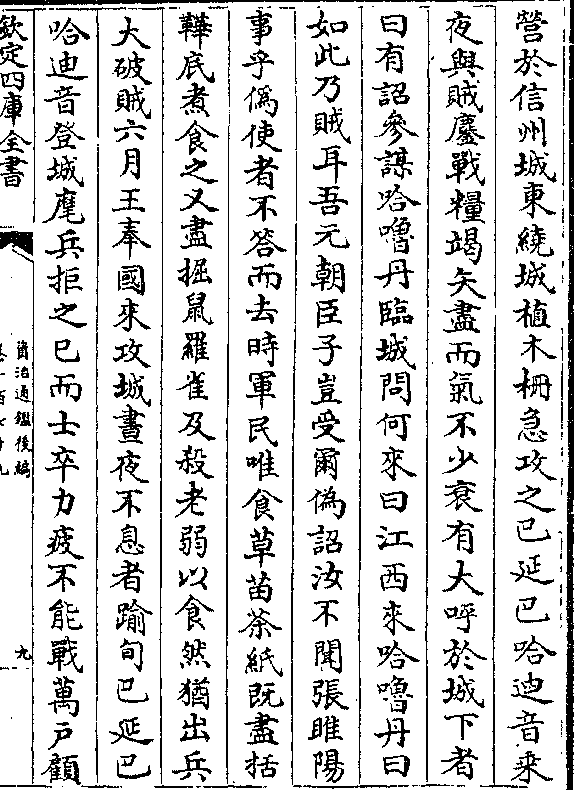 營於信州城東繞城植木柵急攻之巴延巴哈迪音乘
夜與賊鏖戰糧竭矢盡而氣不少衰有大呼於城下者
曰有詔參謀哈嚕丹臨城問何來曰江西來哈嚕丹曰
如此乃賊耳吾元朝臣子豈受爾偽詔汝不聞張睢陽
事乎偽使者不答而去時軍民唯食草苗茶紙既盡括
鞾底煮食之又盡掘鼠羅雀及殺老弱以食然猶出兵
大破賊六月王奉國來攻城晝夜不息者踰旬巴延巴
哈迪音登城麾兵拒之已而士卒力疲不能戰萬戶顧
欽定四庫全書
資治通鑑後編
卷一百七十九
九